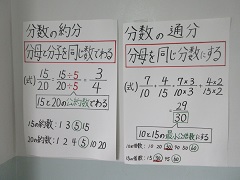 分数の約分
分母と分子を同じ数でわる
(式) 15/20 = 15÷5/20÷5 = 3/4
15と20の公約数でわる
15の約数: 1 3 ⑤ 15
20の約数: 1 2 4 ⑤ 10 20
分数の通分
分母を同じ分数にする
(式) 7/10 4/15 7×3 4×2
29/30
10と15の最小公倍数にする